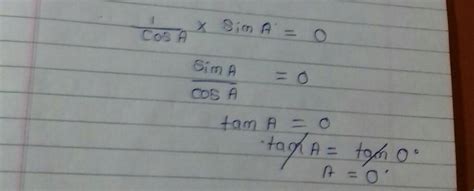 1/COS A × Sin A = 0
Sin A/COS A = 0
tan A = 0
tan A = tan 0°
A = 0°